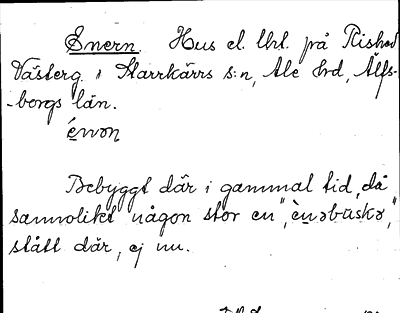 Enern. Hus el. lht. på Rished
Västerg. i Starrkärrs s:n, Ale hrd, Älfs-
-borgs län.
énɷn
Bebyggt där i gammal tid, då
sannolikt någon stor en, "ènəbuskə",
stått där, ej nu.